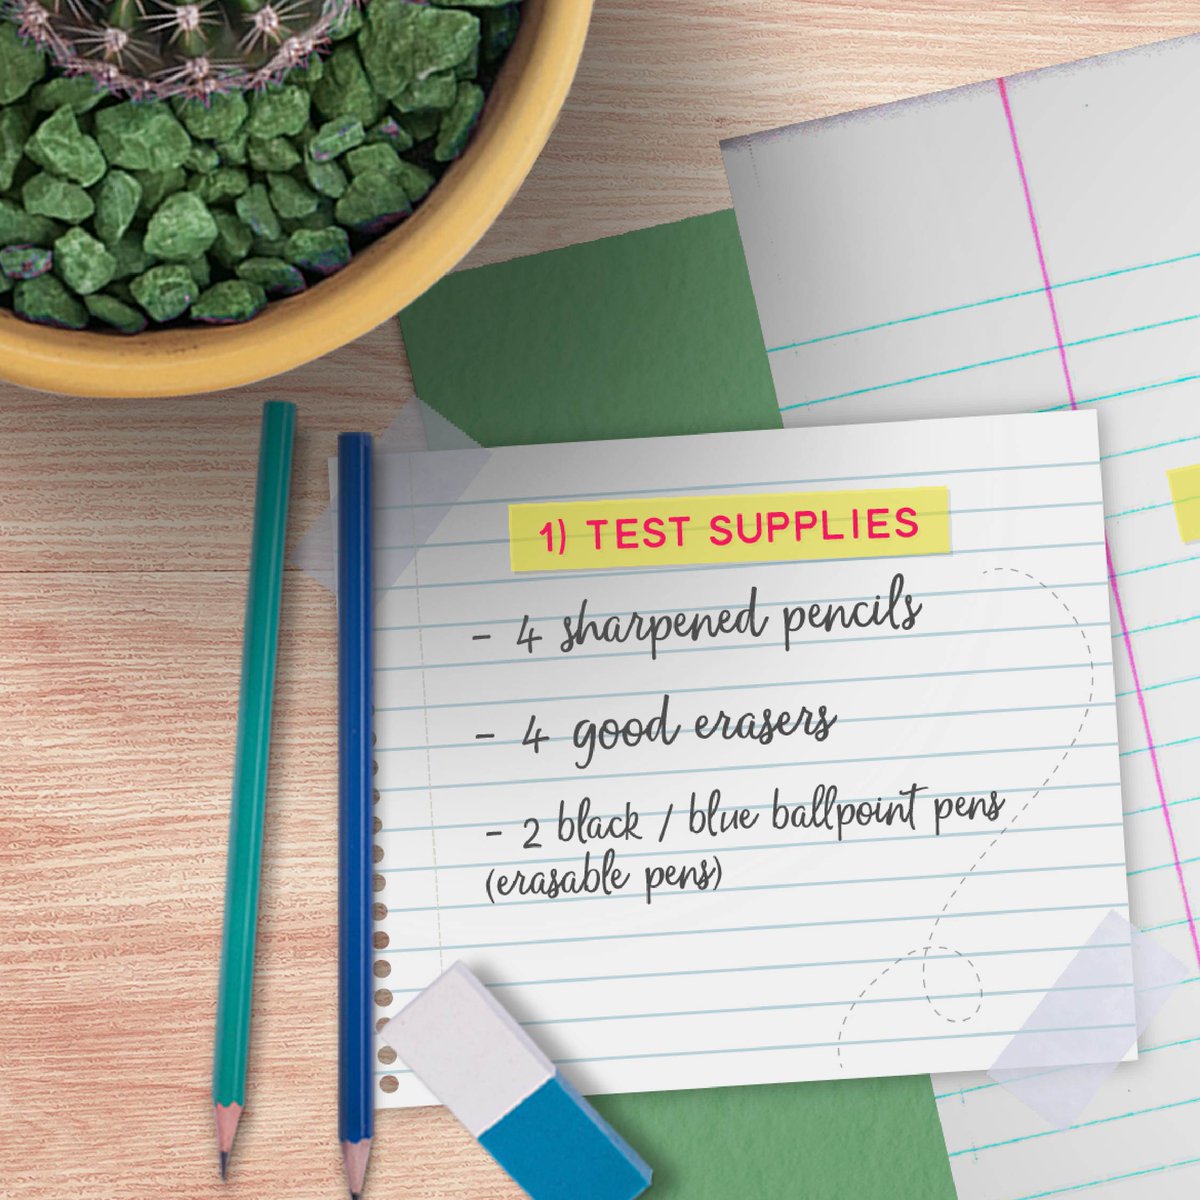 1) TEST SUPPLIES
- 4 sharpened pencils
- 4 good erasers
- 2 black / blue ballpoint pens
(erasable pens)